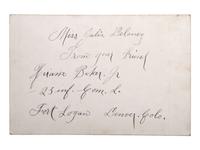 Miss Celia Delaney
From your Friend
Hiram Baker. Jr
25 inf. Com. L.
Fort Logan Denver, Colo.